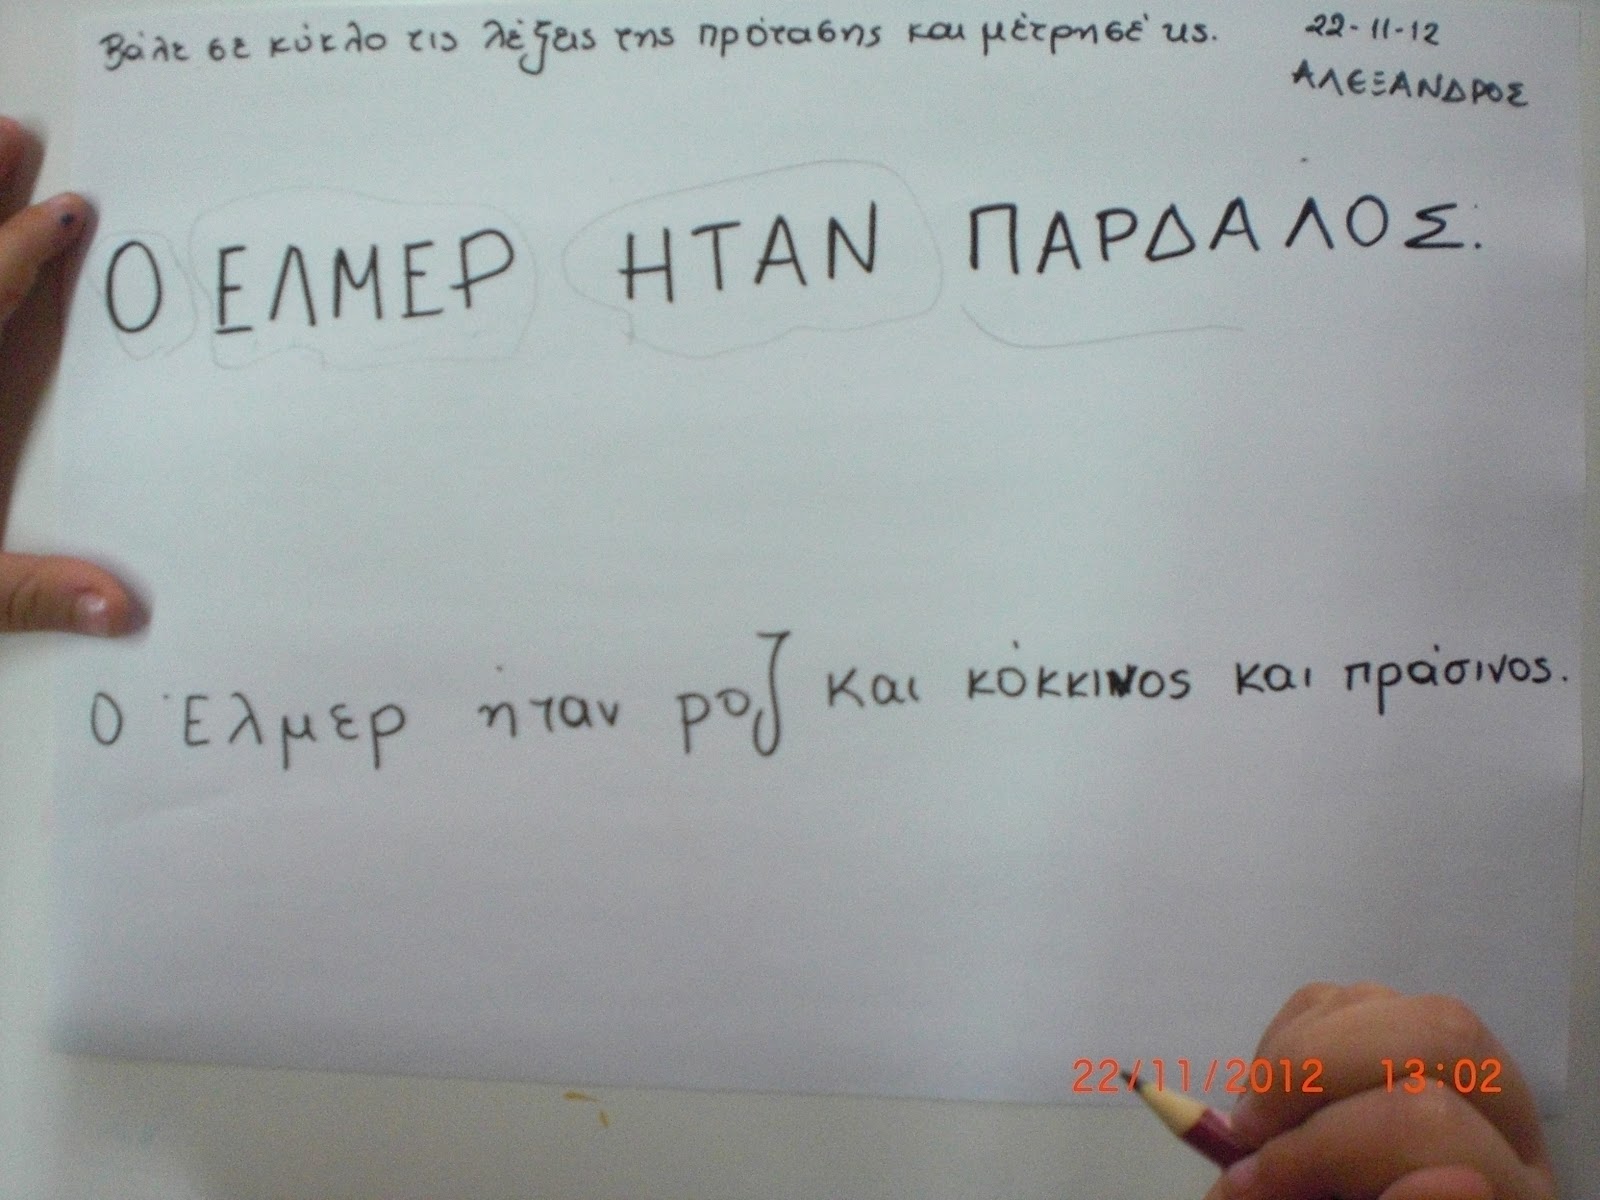 Βάλε σε κύκλο τις λέξεις της πρότασης και μέτρησέ τις.
22-11-12
ΑΛΕΞΑΝΔΡΟΣ
Ο ΕΛΜΕΡ ΗΤΑΝ ΠΑΡΔΑΛΟΣ.
Ο Έλμερ ήταν ροζ και κόκκινος και πράσινος.
22/11/2012 13:02